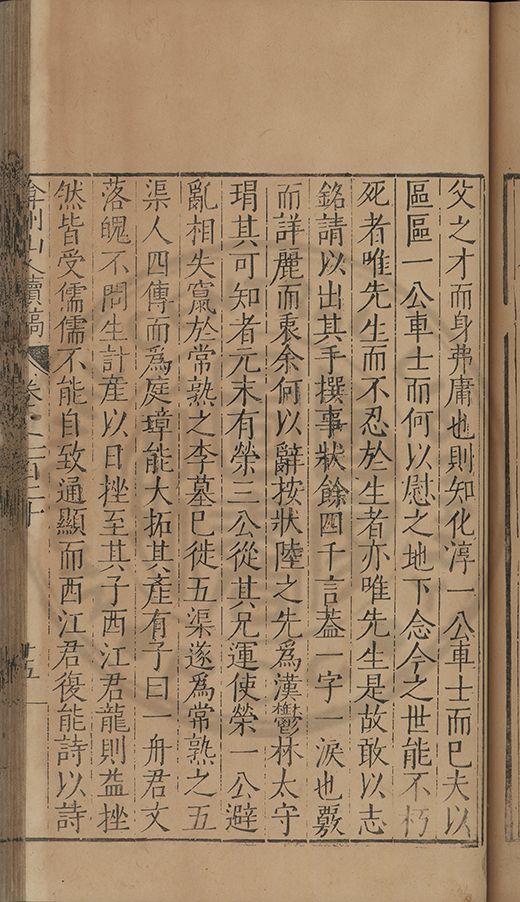 父之才而身弗庸也則知化淳一公車士而已夫以
區區一公車士而何以慰之地下念今之世能不朽
死者唯先生而不忍於生者亦唯先生是故敢以志
銘請以出其手撰事狀餘四千言葢一字一淚也覈
而詳麗而裒余何以辭按狀陸之先為漢鬱林太守
瑁其可知者元末有榮三公從其兄運使榮一公避
亂相失竄於常熟之李墓已徙五渠遂為常熟之五
渠人四傳而為庭璋能大拓其產有子曰一舟君文
落魄不問生計產以日挫至其子西江君龍則益挫
然皆受儒儒不能自致通顯而西江君復能詩以詩
弇州山人續稿 卷之一百二十 廿五